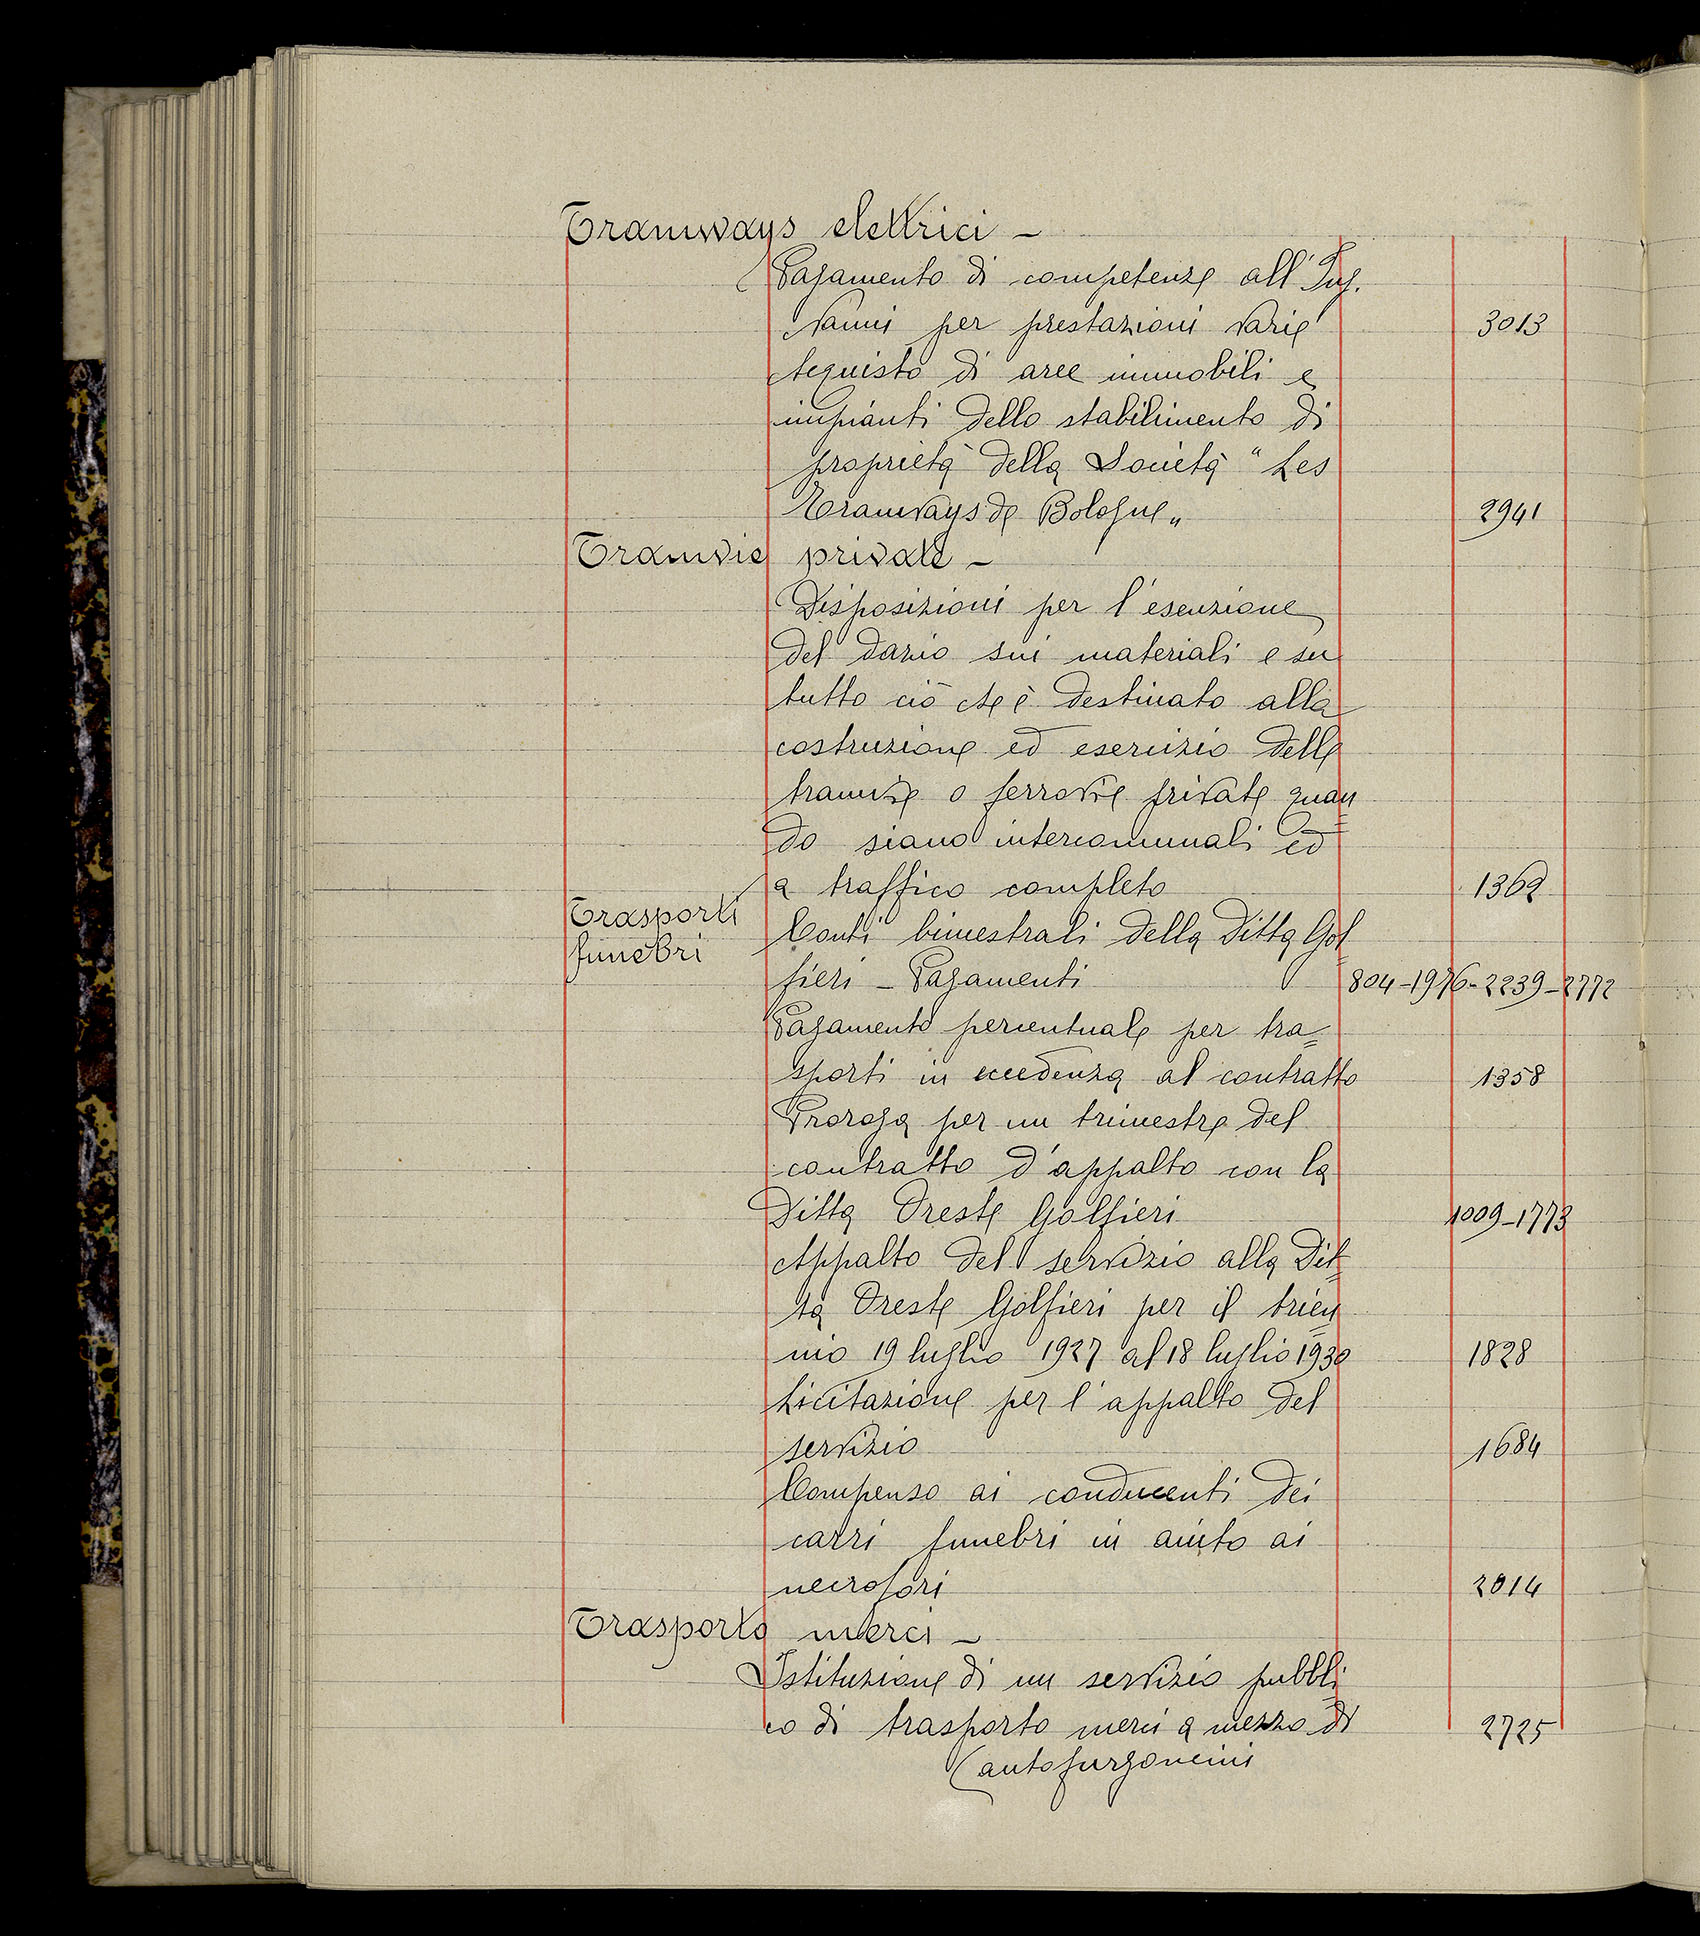 Tramways elettrici -
Pagamento di competenze all'Ing.
Nanni per prestazioni varie
3013
Acquisto di aree immobili e
impianti dello stabilimento di
proprietà della Società "Les
Tramways de Bologne"
2941
Tramvie private -
Disposizioni per l'esenzione
del dazio sui materiali e su
tutto ciò che è destinato alla
costruzione ed esercizio delle
tramvie o ferrovie private quan=
do siano intercomunali ed
a traffico completo
1362
Trasporti
funebri
Conti bimestrali della Ditta Gol
fieri - Pagamenti
804-1976-2239-2772
Pagamento percentuale per tra=
sporti in eccedenza al contratto
1358
Proroga per un trimestre del
contratto d'appalto con la
Ditta Oreste Golfieri
1009-1773
Appalto del servizio alla Dit=
ta Oreste Golfieri per il trien=
nio 19 luglio 1927 al 18 luglio 1930
1828
Licitazione per l'appalto del
servizio
1684
Compenso ai conducenti dei
carri funebri in aiuto ai
necrofori
2014
Trasporto merci -
Istituzione di un servizio pubbli=
co di trasporto merci a mezzo di
2725
(autofurgoncini